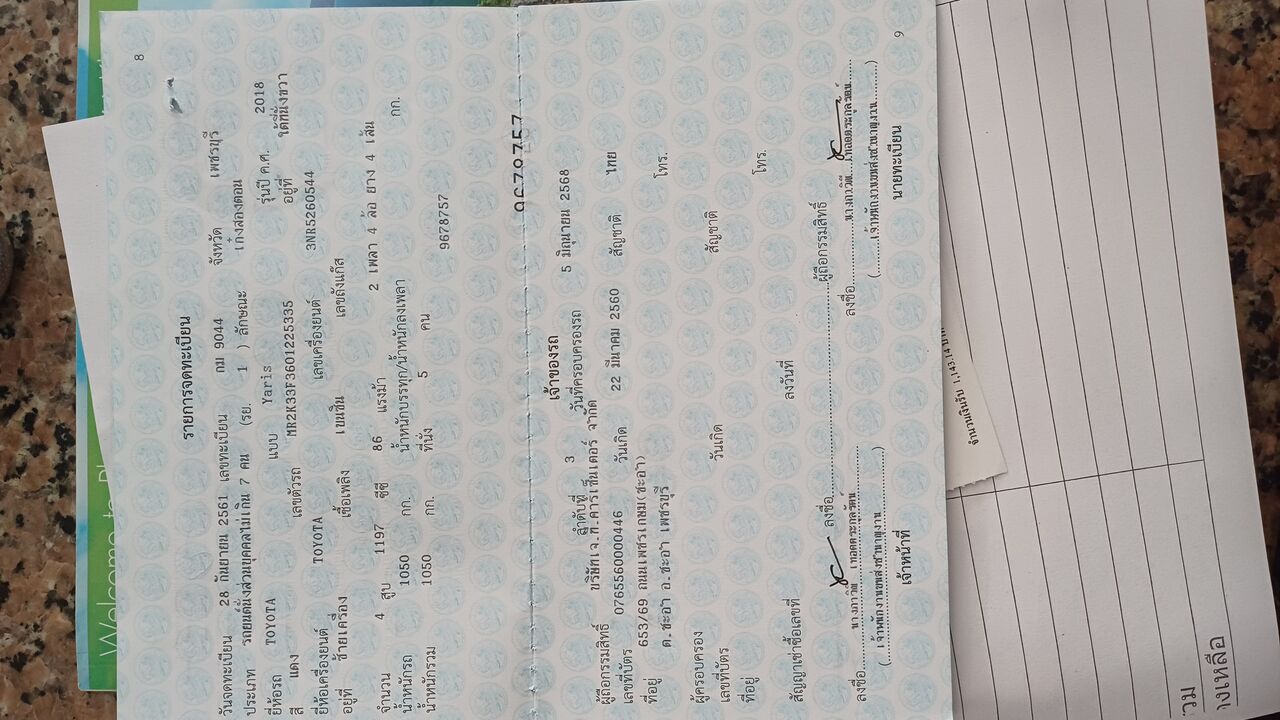 8
รายการจดทะเบียน
วันจดทะเบียน 28 กันยายน 2561 เลขทะเบียน กม 9044 จังหวัด เพชรบุรี
ประเภท รถยนต์นั่งส่วนบุคคลไม่เกิน 7 คน (รย. 1 ) ลักษณะ เก๋งสองตอน
ยี่ห้อรถ TOYOTA แบบ Yaris รุ่นปี ค.ศ. 2018
สี แดง เลขตัวรถ MR2K33F3601225335 อยู่ที่ ใต้ที่นั่งขวา
ยี่ห้อเครื่องยนต์ TOYOTA เลขเครื่องยนต์ 3NR5260544
อยู่ที่ ซ้ายเครื่อง เชื้อเพลิง เบนซิน เลขถังแก๊ส
จำนวน 4 สูบ 1197 ซีซี 86 แรงม้า 2 เพลา 4 ล้อ ยาง 4 เส้น
น้ำหนักรถ 1050 กก. น้ำหนักบรรทุก/น้ำหนักลงเพลา กก.
น้ำหนักรวม 1050 กก. ที่นั่ง 5 คน 9678757
เจ้าของรถ
ลำดับที่ 3 วันที่ครอบครองรถ 5 มิถุนายน 2568
ผู้ถือกรรมสิทธิ์ บริษัทเจ.ที.คาร์เซ็นเตอร์ จำกัด
เลขที่บัตร 0765560000446 วันเกิด 22 มีนาคม 2560 สัญชาติ ไทย
ที่อยู่ 653/69 ถนนเพชรเกษม(ชะอำ) โทร.
ต.ชะอำ อ.ชะอำ เพชรบุรี
ผู้ครอบครอง
เลขที่บัตร วันเกิด สัญชาติ
ที่อยู่ โทร.
สัญญาเช่าซื้อเลขที่ ลงวันที่
ลงชื่อ ผู้ถือกรรมสิทธิ์
ลงชื่อ ลงชื่อ
(เจ้าพนักงานขนส่งชำนาญงาน) (เจ้าพนักงานขนส่งชำนาญงาน)
เจ้าหน้าที่ นายทะเบียน
9
Welcome to